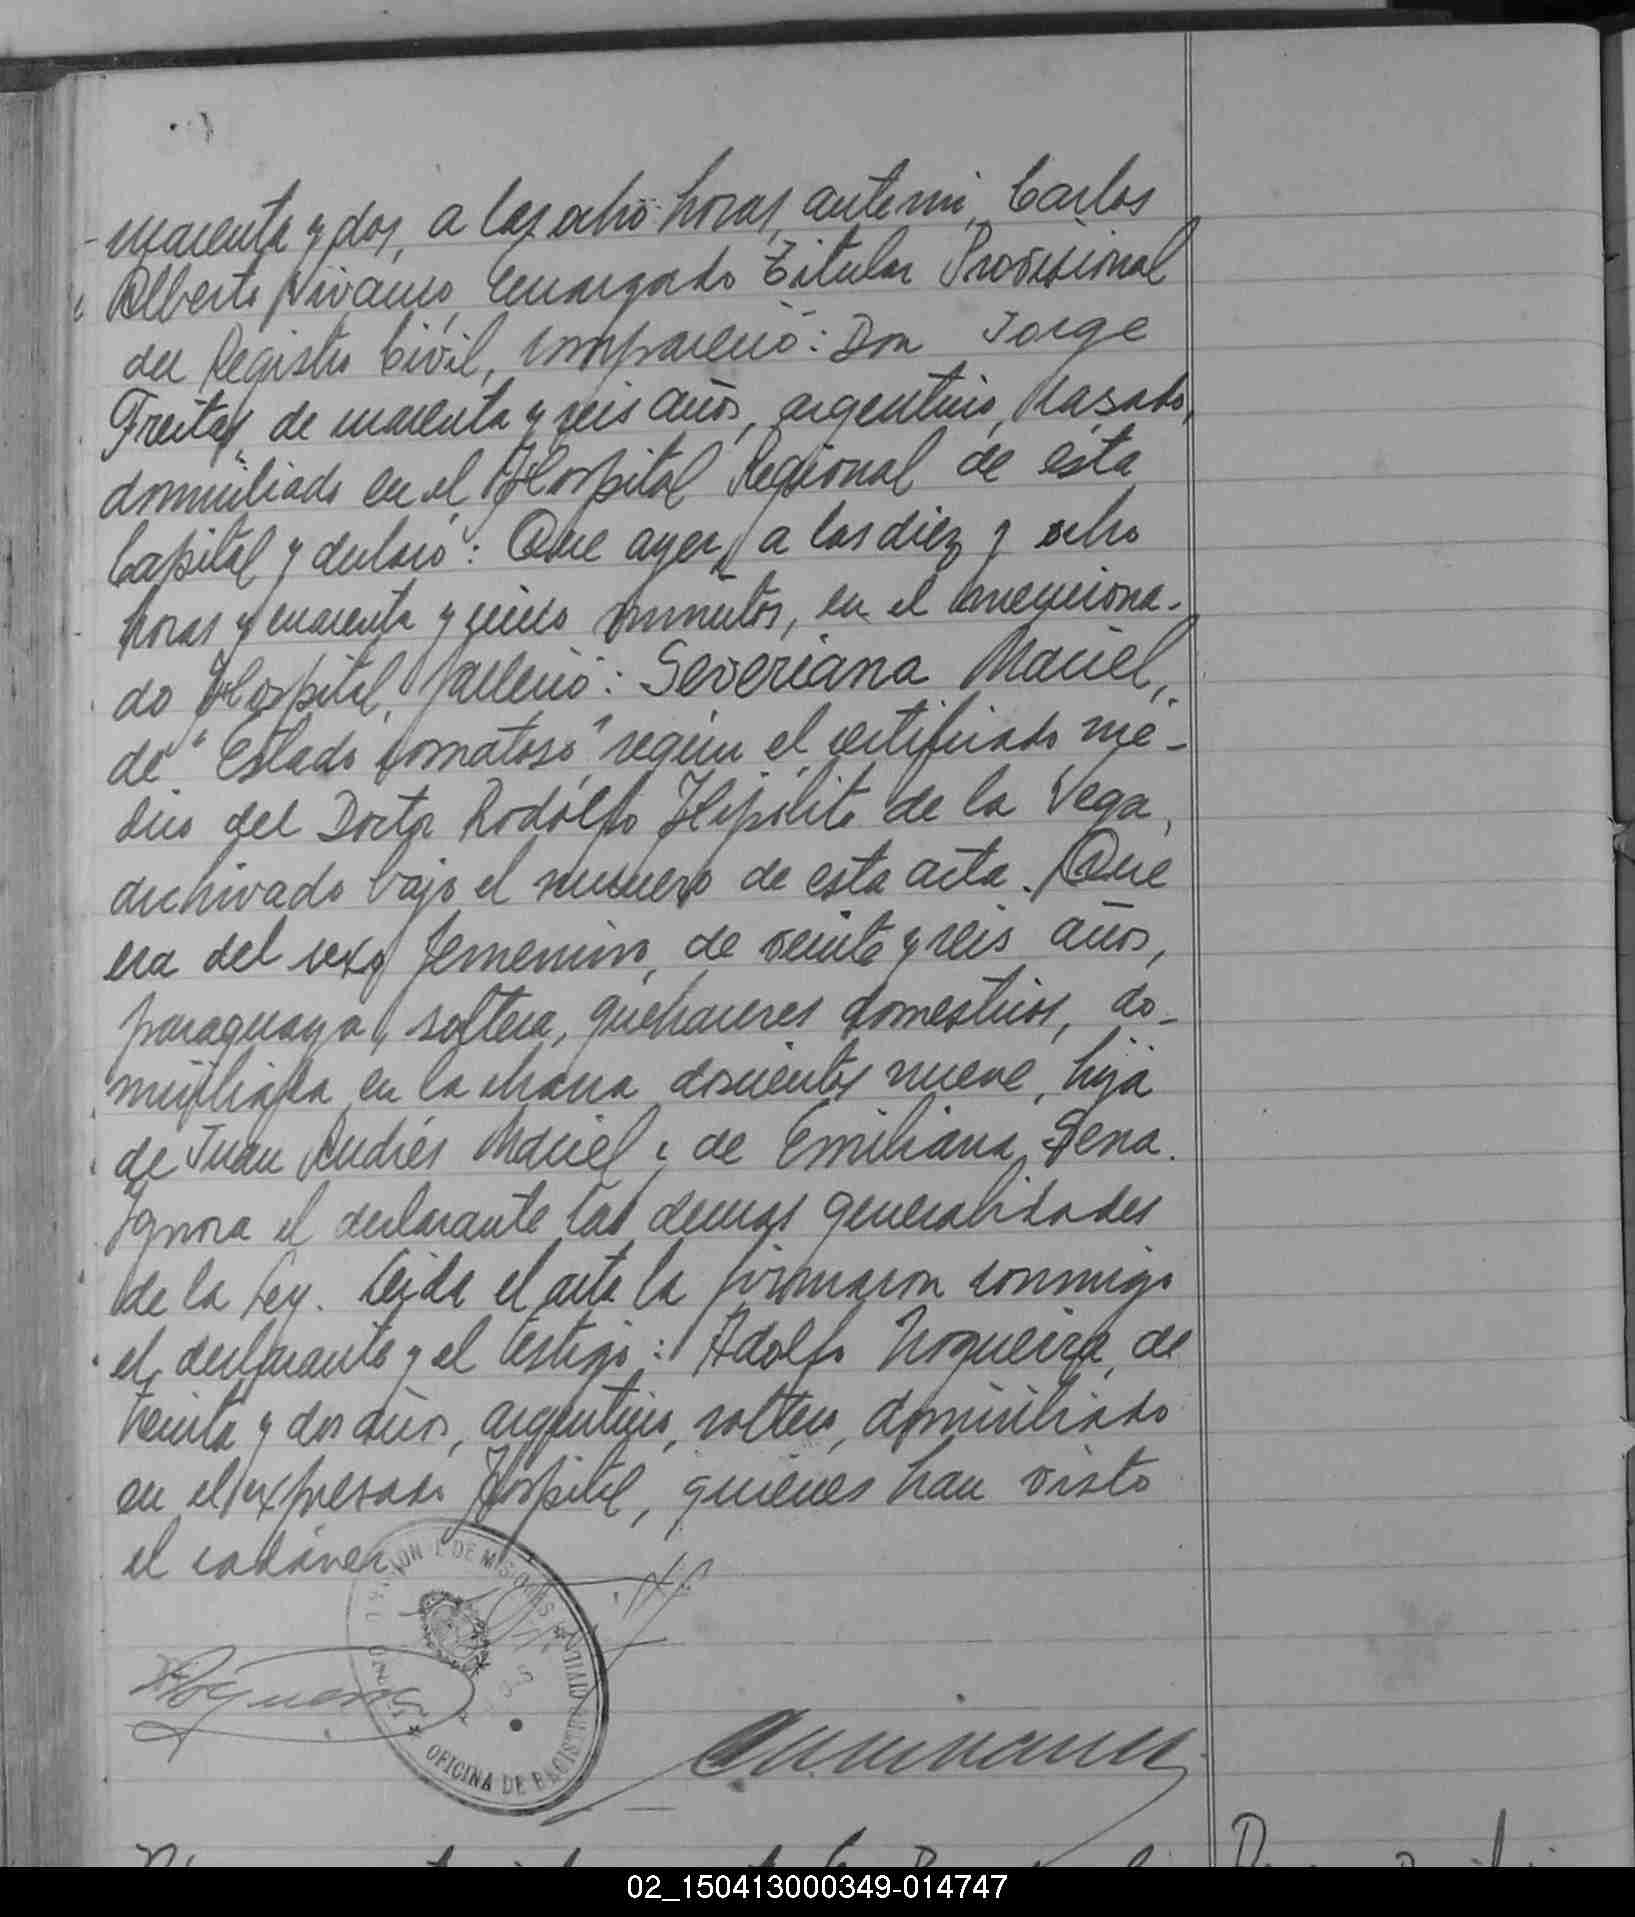 cuarenta y dos, a las ocho horas, ante mi, Carlos
Alberto Vivanco, Encargado Titular Provisional
del Registro Civil, compareció: Don Jorge
Freitas, de cuarenta y seis años, argentino, casado,
domiciliado en el Hospital Regional de esta
Capital y declaró: Que ayer, a las diez y ocho
horas y cuarenta y cinco minutos, en el menciona-
do Hospital, falleció: Severiana Maciel,
de "Estado comatoso" según el certificado mé-
dico del Doctor Rodolfo Hipólito de la Vega,
archivado bajo el número de esta acta. Que
era del sexo femenino, de veinte y seis años,
paraguaya, soltera, quehaceres domesticos, do-
miciliada en la chacra doscientos nueve, hija
de Juan Andrés Maciel y de Emiliana Sena.
Ignora el declarante las demas generalidades
de la Ley. Leida el acta la firmaron conmigo
el declarante y el testigo: Adolfo Nogueira, de
treinta y dos años, argentino, soltero, domiciliado
en el expresado Hospital, quienes han visto
el cadáver.
OFICINA DE REGISTRO CIVIL
02_150413000349-014747